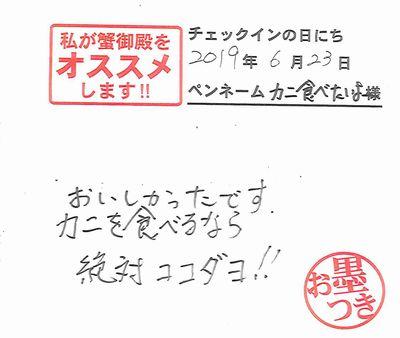 私が蟹御殿を
オススメ
します!!
チェックインの日にち
2019年 6月23日
ペンネーム カニ食べたいよ様
おいしかったです
カニを食べるなら
絶対ココダヨ!!
お墨
つき